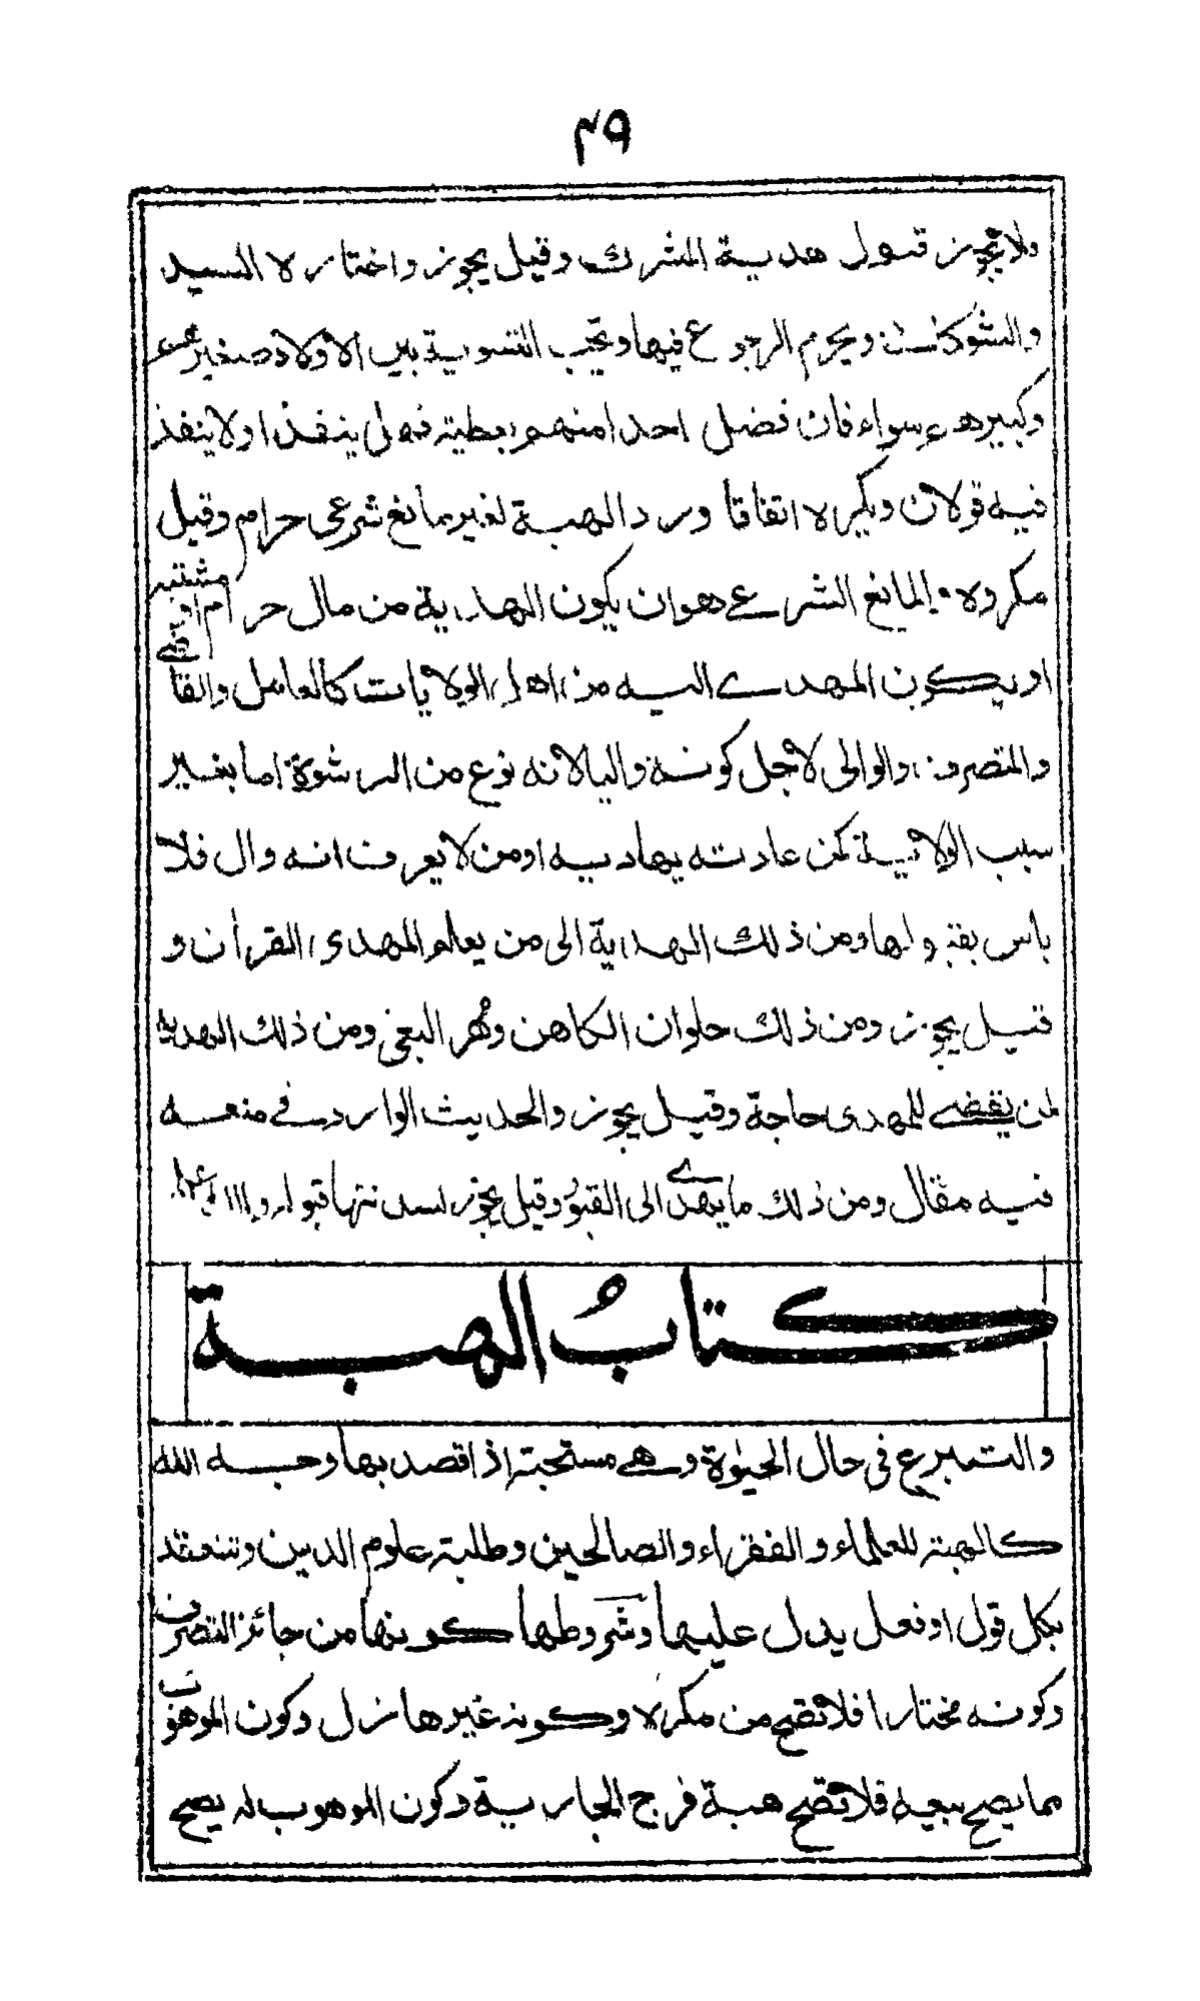 ٤٩
ولا يجوز قبول هدية المشرك وقيل يجوز واختاره السيد
والشوكاني ويحرم الرجوع فيها وتجب التسوية بين الاولاد صغيرهم
وكبيرهم سواء فان فضل احدا منهم بعطيته فهل ينفذ او لا ينفذ
فيه قولان ويكره اتفاقا ورد الهبة لغير مانع شرعي حرام وقيل
مكروه والمانع الشرعي هو ان يكون الهدية من مال حرام او مشتبه
او يكون المهدى اليه من اهل الولايات كالعامل والقاضي
والمتصرف والوالى لاجل كونه واليا لانه نوع من الرشوة اما بغير
سبب الولاية كمن عادته يهاديه او من لا يعرف انه وال فلا
باس بقبولها ومن ذلك الهدية الى من يعلم المهدى القرأن و
قيل يجوز ومن ذلك حلوان الكاهن ومهر البغي ومن ذلك الهدية
لمن يقضى للمهدى حاجة وقيل يجوز والحديث الوارد في منعه
فيه مقال ومن ذلك ما يهدى الى القبور وقيل يجوز لسدنتها قبوله
كتابُ الهبة
والتبرع في حال الحيٰوة وهي مستحبة اذا قصد بها وجه الله
كالهبة للعلماء والفقراء والصالحين وطلبة علوم الدين وتنعقد
بكل قول او فعل يدل عليها وشروطها كونها من جائز التصرف
وكونه مختارا فلا تصح من مكره وكونه غير هازل وكون الموهوب
مما يصح بيعه فلا تصح هبة فرج الجارية وكون الموهوب له يصح